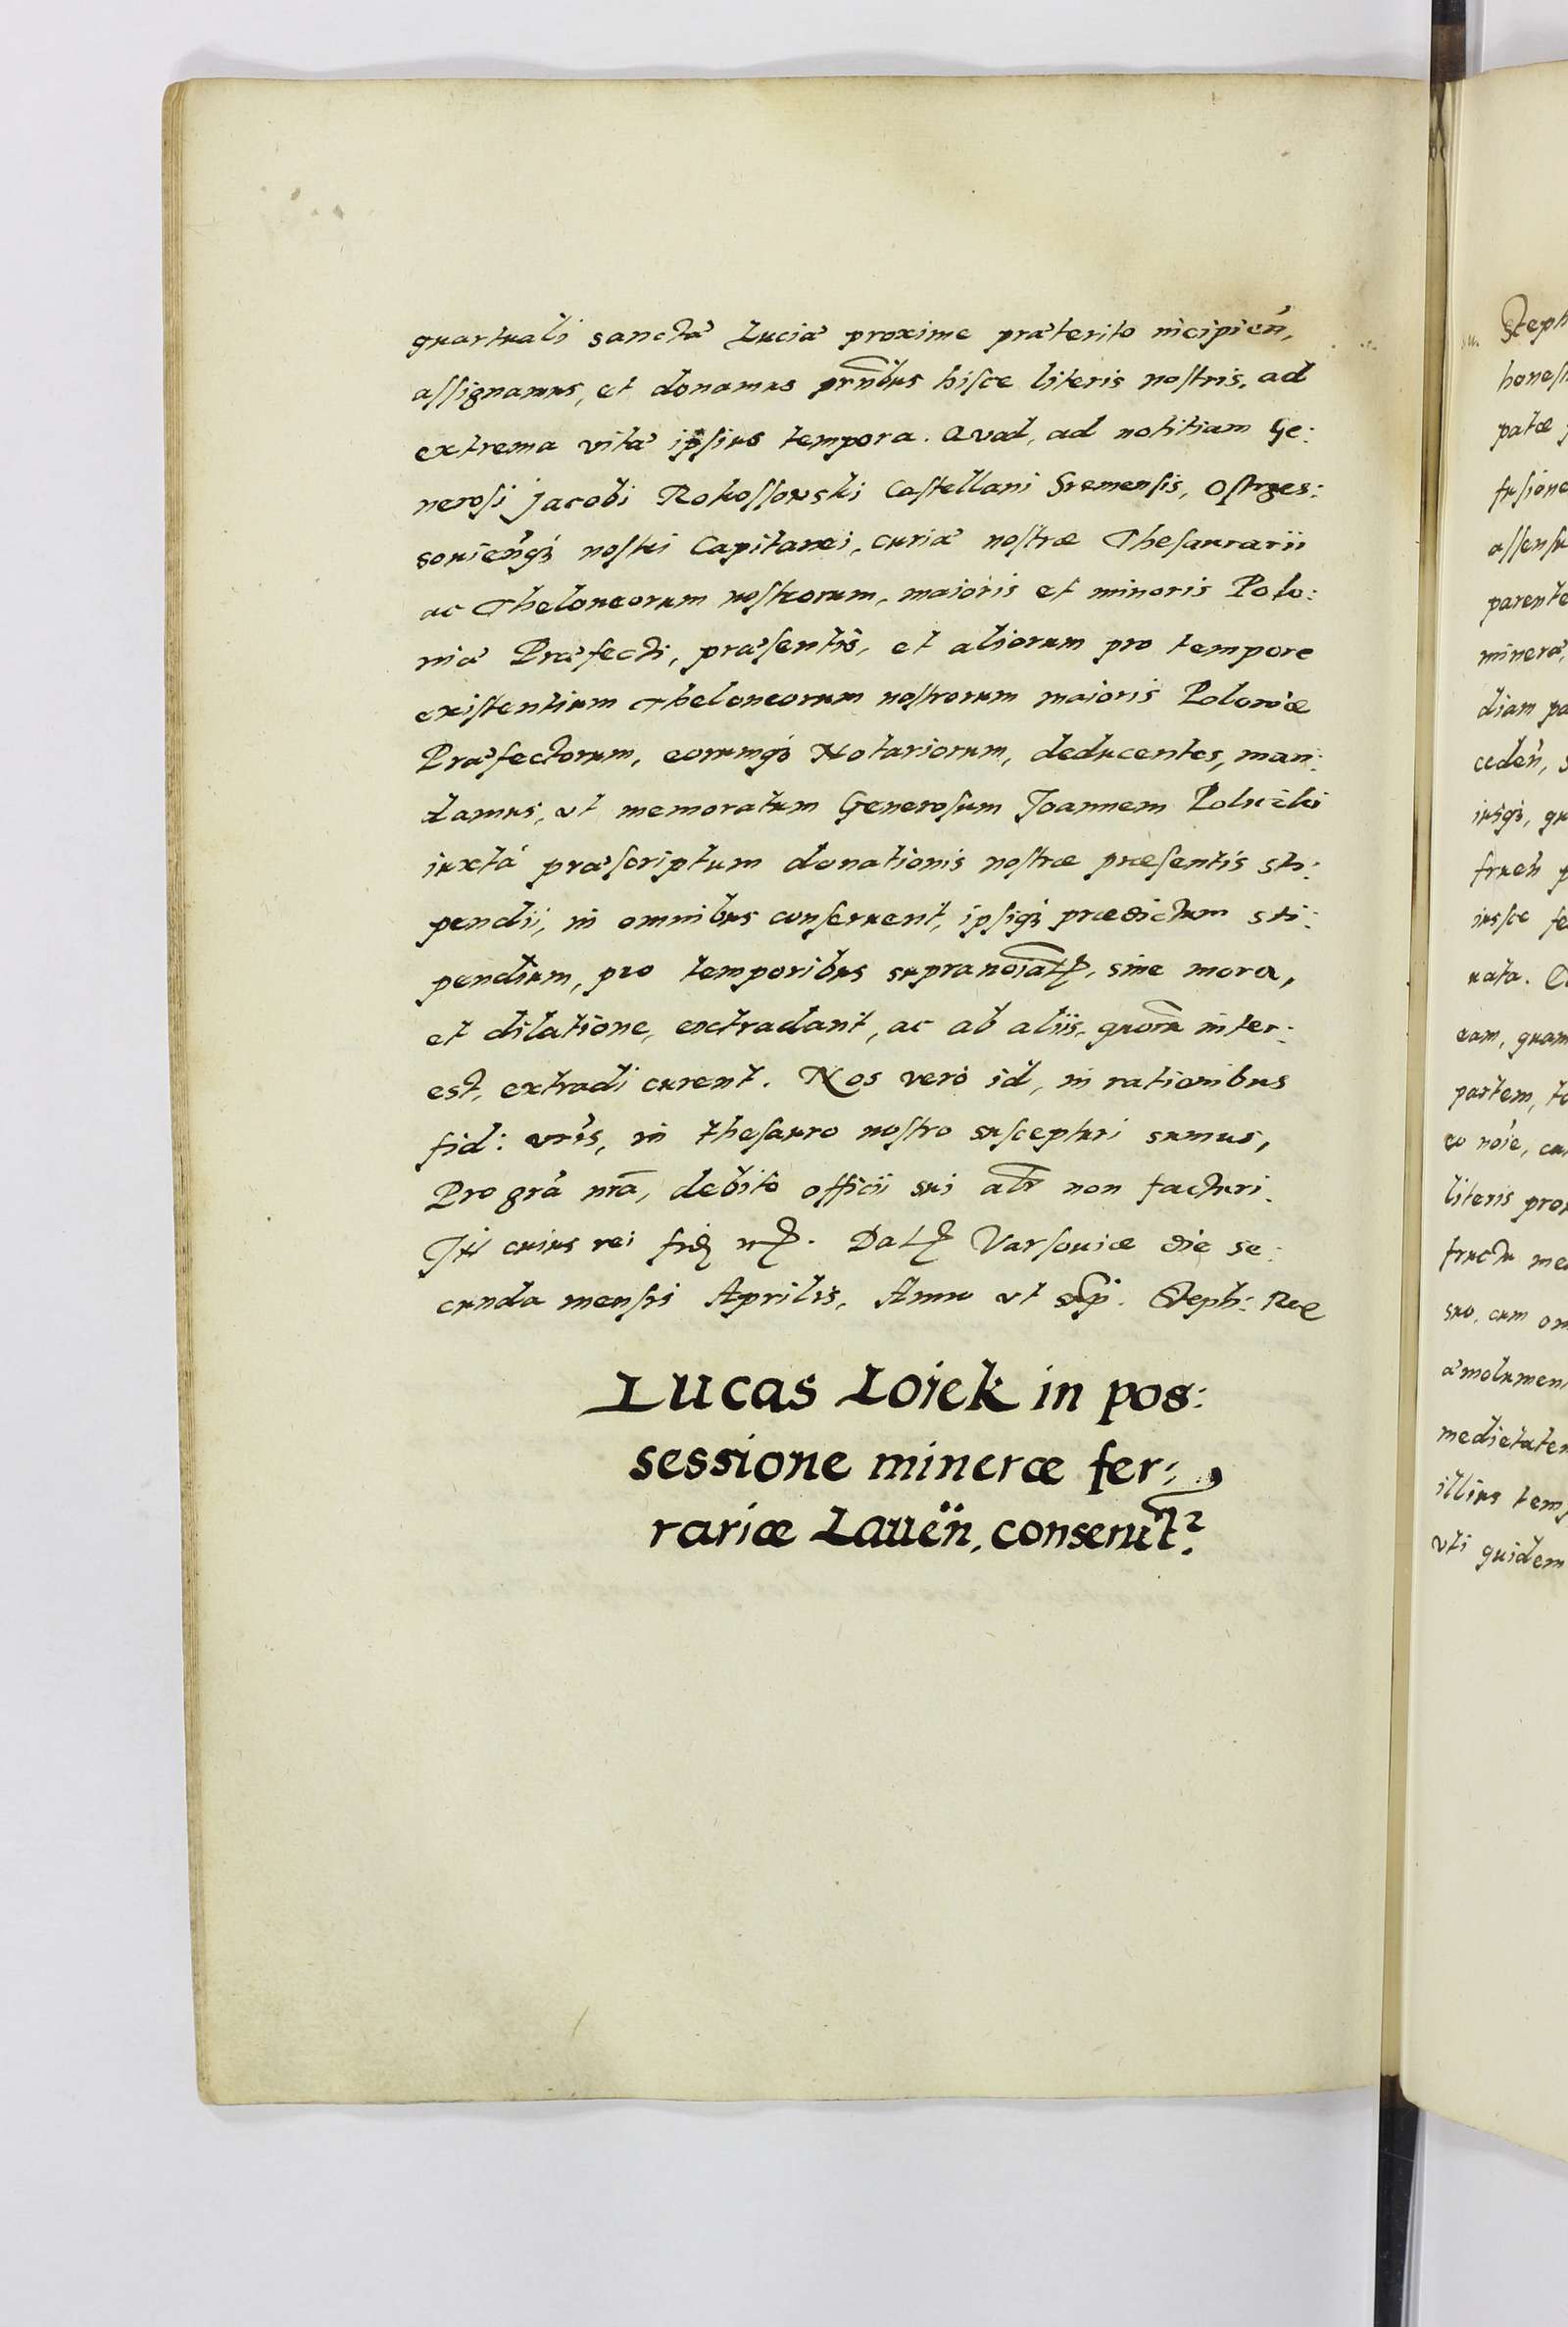 quartuali sanctæ Luciæ proxime præterito incipien̄,
aſſignamus, et donamus prn̄tibus hisce literis noſtris, ad
extrema vitæ ipſius tempora. Quod, ad notitiam Ge:
neroſi Jacobi Rokoſſowski Caſtellani Sremenſis, Oſtrzes:
souien̄q₃ noſtri Capitanei, curiæ noſtræ Theſaurarii
ac Theloneorum noſtrorum, maioris et minoris Polo:
niæ Præfecti, præſentis, et aliorum pro tempore
exiſtentium Theloneorum noſtrorum maioris Poloniæ
Præfectorum, eorumq₃ Notariorum, deducentes, man:
damus, vt memoratum Generoſum Joannem
iuxtá præſcriptum donationis noſtræ præſentis sti:
pendii, in omnibus conſeruent, ipſiq₃ prædictum sti:
pendium, pro temporibus supranoīat₎, sine mora,
et dilatione, extradant, ac ab aliis, quorū inter:
est, extradi curent. Nos verò id, in rationibus
fid: vrīs, in theſauro noſtro suscepturi sumus,
Pro grā nrā, debito officii sui alr̄ non facturi.
In cuius rei fid₎ . Dat₎ Varſouiæ die se:
cunda menſis Aprilis, Anno vt sup̄. Steph: Rex
Lucas Loiek in pos:
sessione mineræ fer:
rariæ Lauen̄, conseruat̄ꝛ.
Steph
honeſt
patæ
fuſione
aſſenſu
parente
mineræ,
diam pa
ceden̄, s
iusq₃, qu
fruen̄ p
iusſce fe
uata.
eam, quam
partem, to
eo noīe, cu
literis pro
fructu me
suo, cum om
æmolumen
medietatem
illius temp
vti quidem